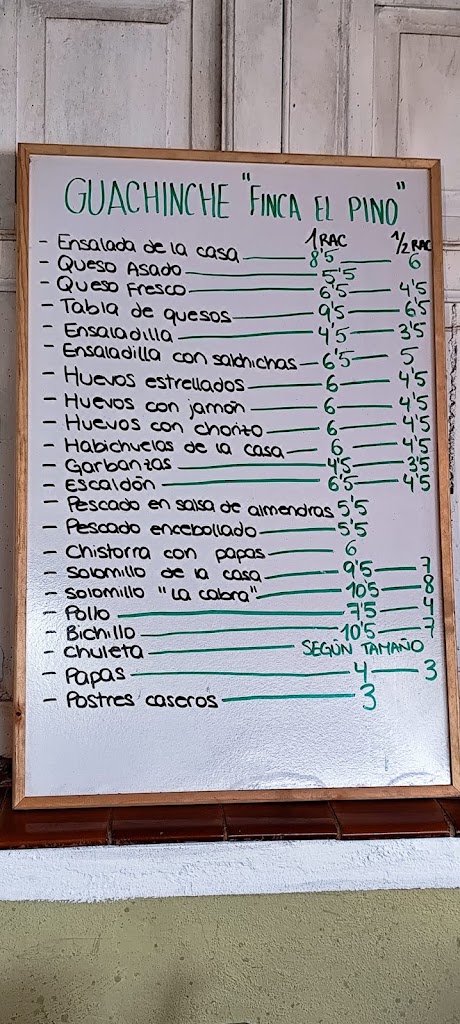 GUACHINCHE "FINCA EL PINO"
1 RAC 1/2 RAC
- Ensalada de la casa 8'5 6
- Queso Asado 5'5
- Queso Fresco 6'5 4'5
- Tabla de quesos 9'5 6'5
- Ensaladilla 4'5 3'5
- Ensaladilla con salchichas 6'5 5
- Huevos estrellados 6 4'5
- Huevos con jamón 6 4'5
- Huevos con chorizo 6 4'5
- Habichuelas de la casa 6 4'5
- Garbanzas 4'5 3'5
- Escaldón 6'5 4'5
- Pescado en salsa de almendras 5'5
- Pescado encebollado 5'5
- Chistorra con papas 6
- Solomillo de la casa 9'5 7
- Solomillo "La cabra" 10'5 8
- Pollo 7'5 4
- Bichillo 10'5 7
- Chuleta SEGÚN TAMAÑO
- Papas 4 3
- Postres caseros 3